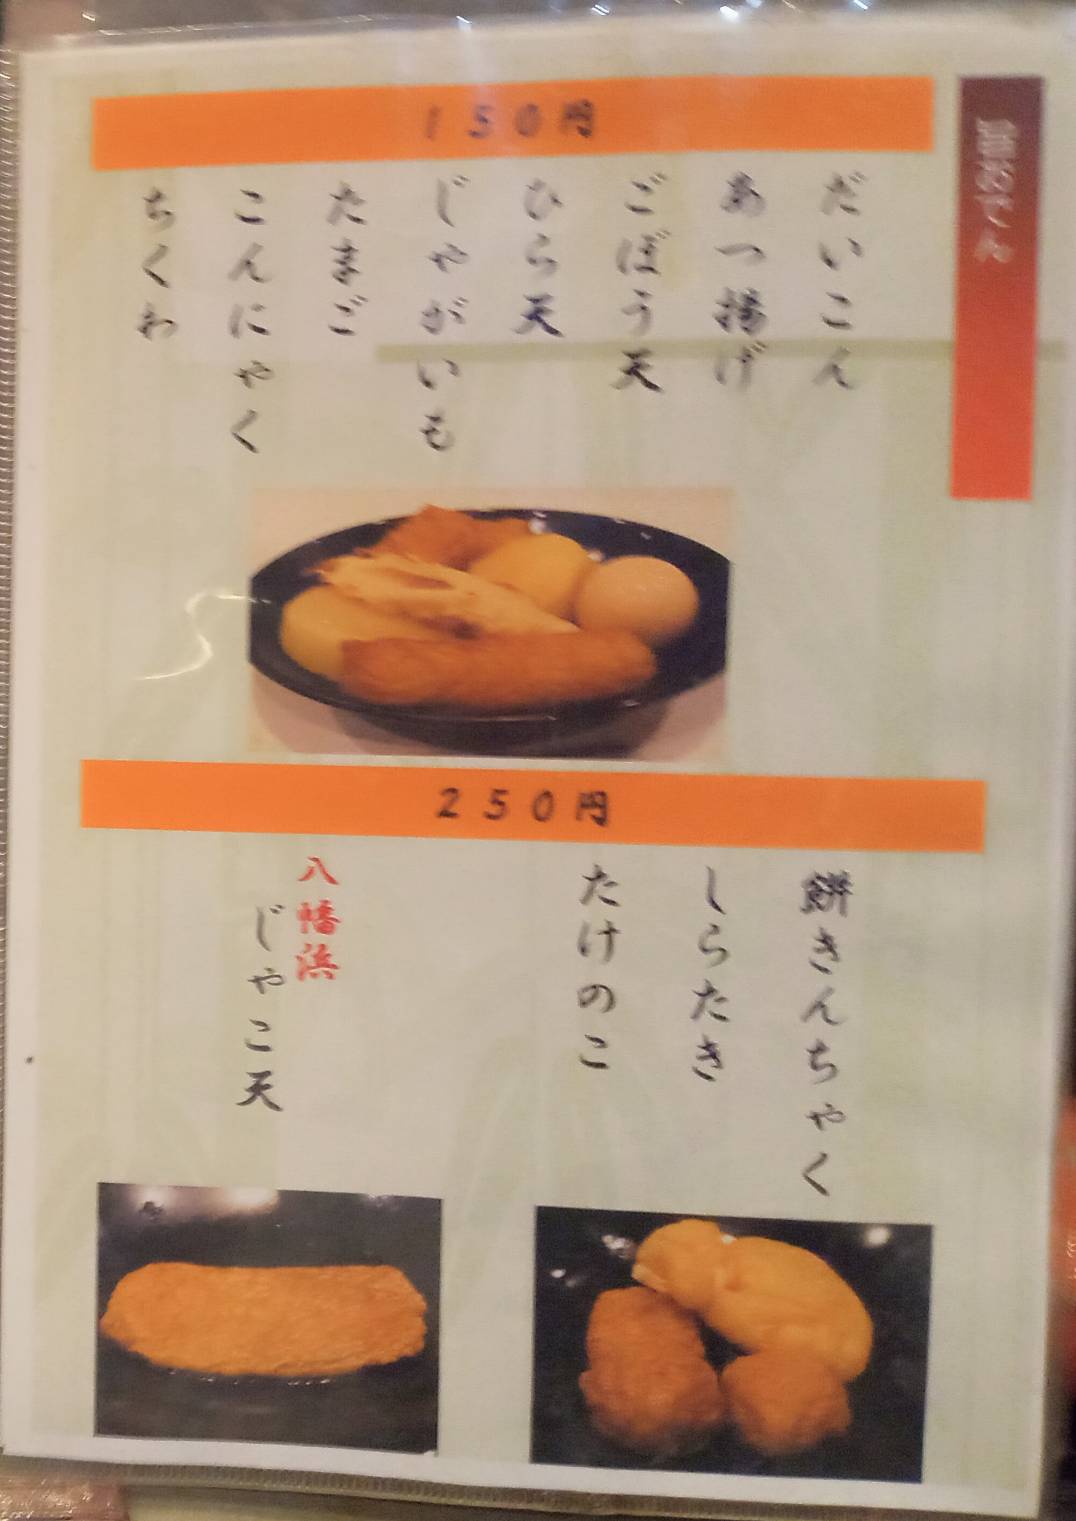 旨おでん
150円
だいこん
あつ揚げ
ごぼう天
ひら天
じゃがいも
たまご
こんにゃく
ちくわ
250円
餅きんちゃく
しらたき
たけのこ
八幡浜
じゃこ天